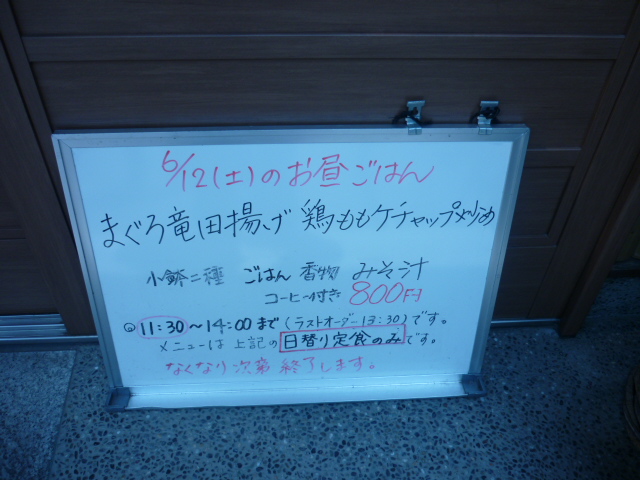 6/12(土)のお昼ごはん
まぐろ竜田揚げ 鶏ももケチャップ炒め
小鉢二種 ごはん 香物 みそ汁
コーヒー付き 800円
11:30〜14:00まで(ラストオーダー13:30)です。
メニューは上記の日替り定食のみです。
なくなり次第終了します。